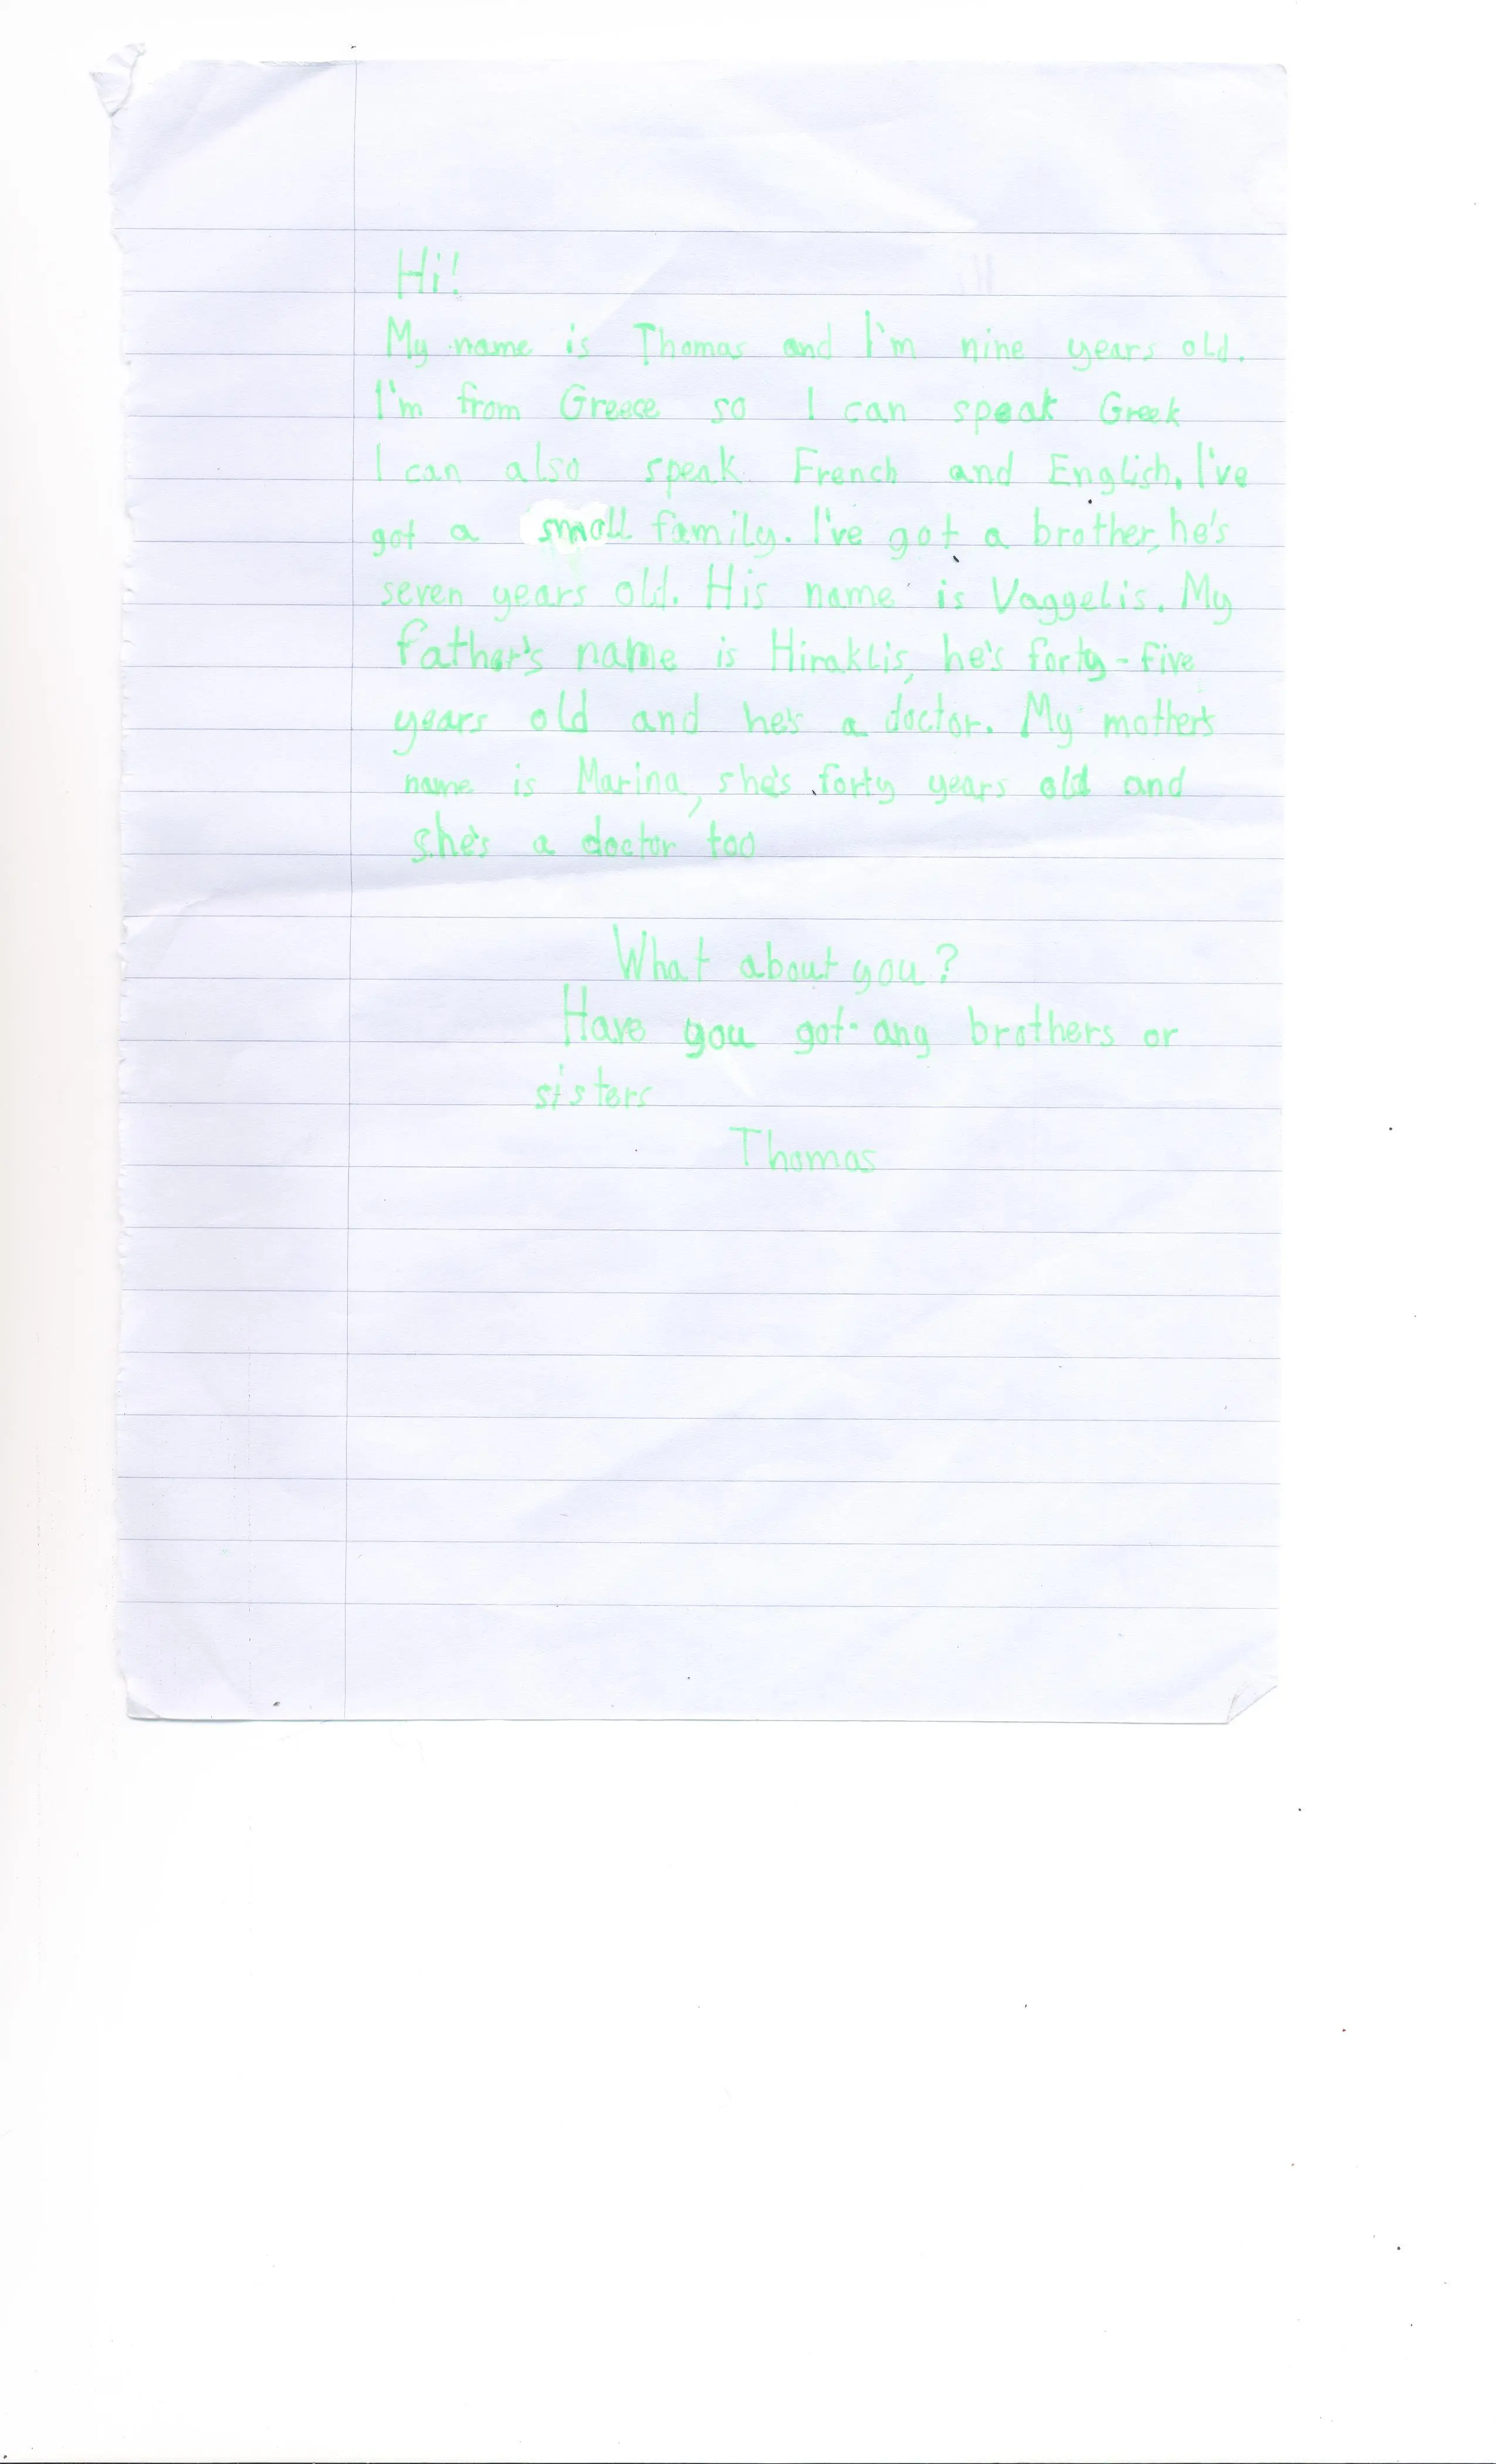 Hi!
My name is Thomas and I'm nine years old.
I'm from Greece so I can speak Greek
I can also speak French and English. I've
got a small family. I've got a brother, he's
seven years old. His name is Vaggelis. My
father's name is Hiraklis, he's forty-five
years old and he's a doctor. My mother's
name is Marina, she's forty years old and
she's a doctor too
What about you?
Have you got any brothers or
sisters
Thomas